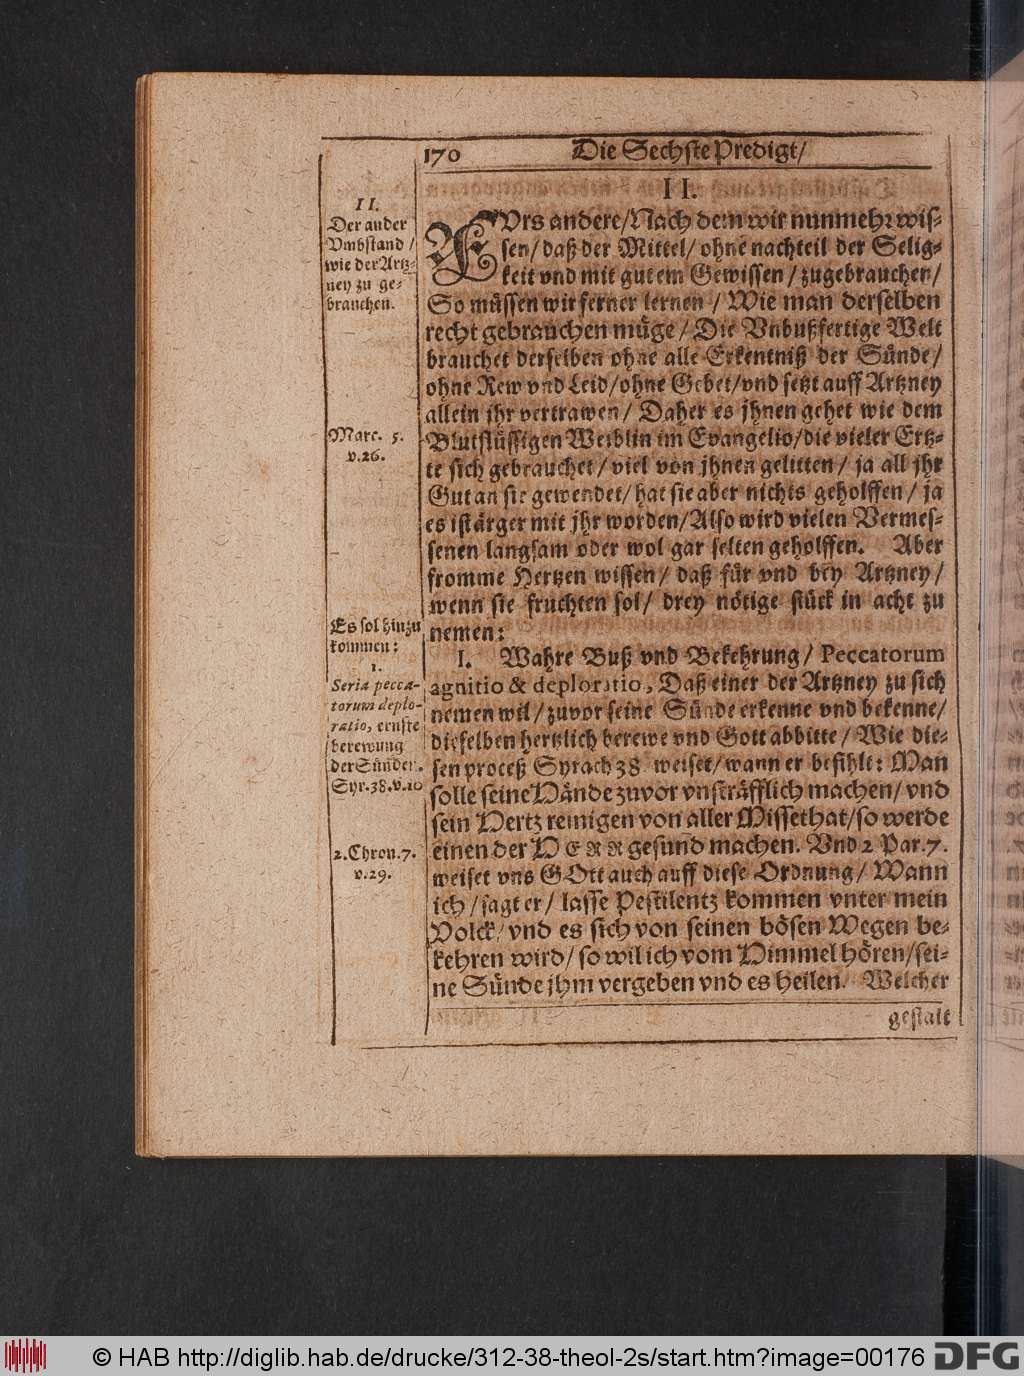 170 Die Sechste Predigt/
II.
II.
Der ander
Vmbstand/
wie der Artz-
ney zu ge-
brauchen.
FVrs andere/Nach dem wir nunmehr wis-
sen/daß der Mittel/ohne nachteil der Selig-
keit vnd mit gutem Gewissen/zugebrauchen/
So müssen wir ferner lernen/Wie man derselben
recht gebrauchen müge/Die Vnbußfertige Welt
brauchet derselben ohne alle Erkentniß der Sünde/
ohne Rew vnd Leid/ohne Gebet/vnd setzt auff Artzney
allein ihr vertrawen/Daher es jhnen gehet wie dem
Marc. 5.
v.26.
Blutflüssigen Weiblin im Evangelio/die vieler Ertz-
te sich gebrauchet/viel von jhnen gelitten/ja all jhr
Gut an sie gewendet/hat sie aber nichts geholffen/ja
es ist ärger mit jhr worden/Also wird vielen Vermes-
senen langsam oder wol gar selten geholffen. Aber
fromme Hertzen wissen/daß für vnd bey Artzney/
wenn sie fruchten sol/drey nötige stück in acht zu
nemen:
Es sol hinzu
kommen:
1.
Seria pecca-
torum deplo-
ratio, ernste
berewung
der Sünden.
Syr.38.v.10
I. Wahre Buß vnd Bekehrung/Peccatorum
agnitio & deploratio, Daß einer der Artzney zu sich
nemen wil/zuvor seine Sünde erkenne vnd bekenne/
dieselben hertzlich berewe vnd Gott abbitte/Wie die-
sen proceß Syrach 38 weiset/wann er befihlt: Man
solle seine Hände zuvor vnsträfflich machen/vnd
sein Hertz reinigen von aller Missethat/so werde
2.Chron.7.
v.29.
einen der HERR gesund machen. Vnd 2 Par.7.
weiset vns GOtt auch auff diese Ordnung/Wann
ich/sagt er/lasse Pestilentz kommen vnter mein
Volck/vnd es sich von seinen bösen Wegen be-
kehren wird/so wil ich vom Himmel hören/sei-
ne Sünde jhm vergeben vnd es heilen. Welcher
gestalt
© HAB http://diglib.hab.de/drucke/312-38-theol-2s/start.htm?image=00176 DFG